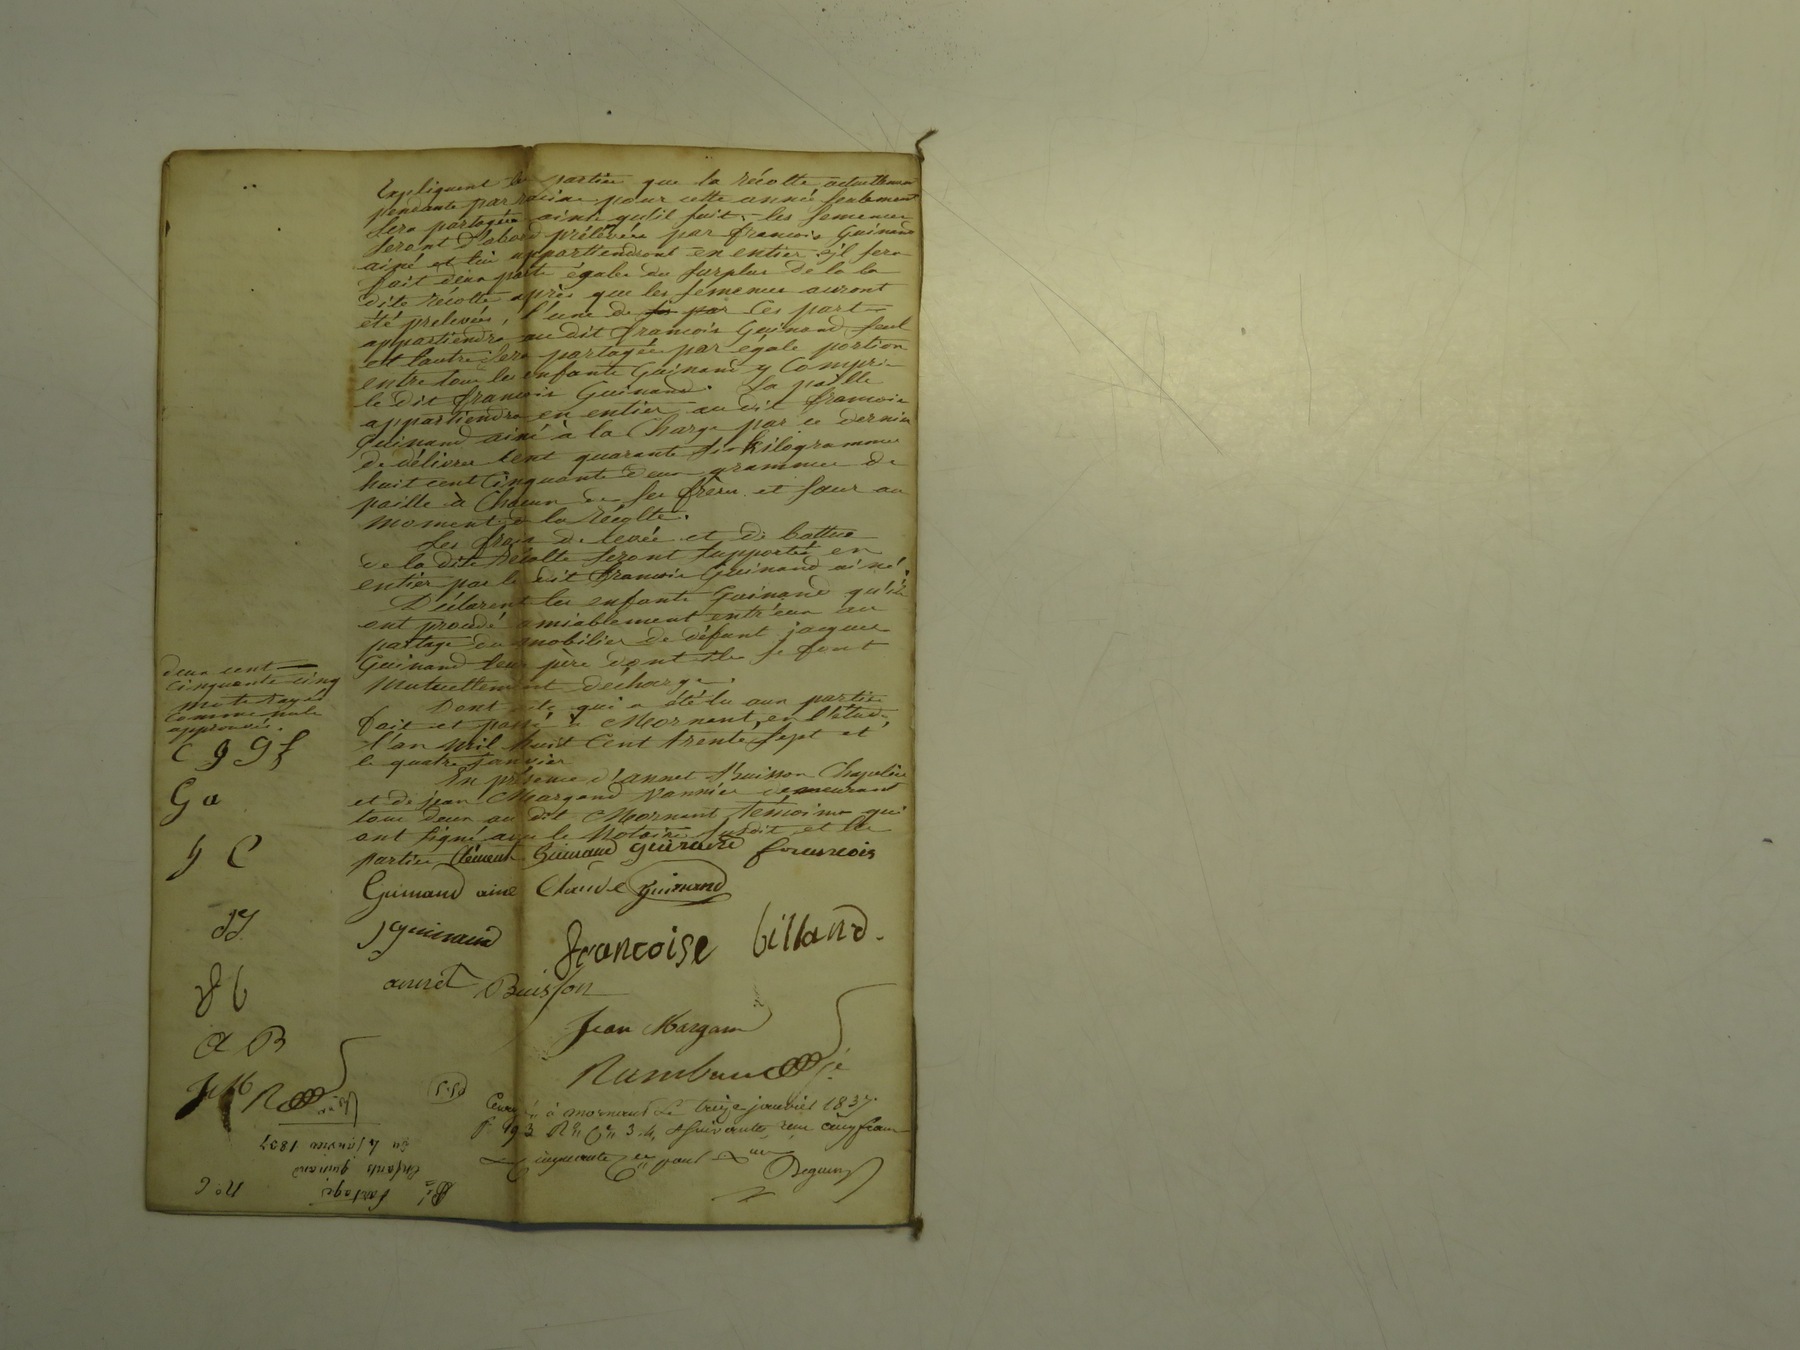 Expliquent les parties que la récolte actuellement
pendante par racine pour cette année seulement
sera partagée ainsi qu'il suit, les semences
seront d'abord prélevées par françois Guinand
ainé et lui appartiendront en entier, il sera
fait deux parts égales du surplus de la la
dite récolte après que les semences auront
été prelevées, l'une de ces part
appartiendra au dit françois Guinand seul
et l'autre sera partagée par égale portion
entre tous les enfants Guinand y compris
le dit françois Guinand. La paille
appartiendra en entier au dit françois
Guinand ainé à la Charge par ce dernier
de délivrer cent quarante six kilogrammes
huit cent cinquante deux grammes de
paille à Chacun de ses frères et sœur au
moment de la récolte.
Les frais de levée et de battue
de la dite récolte seront supportés en
entier par le dit francois Guinand ainé.
Déclarent les enfants Guinand qu'ils
ont procédé amiablement entr'eux au
partage du mobilier de défunt jacques
Guinand leur père dont ils se font
Mutuellement décharge.
Dont acte qui a été lu aux parties
fait et passé à Mornant, en l'étude,
l'an mil huit cent trente sept et
le quatre janvier
En présence d'annet Buisson Chapelier
et de jean Margand Vannier demeurant
tous deux au dit Mornant témoins qui
ont signé avec le Notaire susdit et les
parties Clément Guinand guinand francois
Guinand ainé Claude guinand
J guinand francoise billand.
annet Buisson
Jean Margand
Rambaud
deux cent
cinquante cinq
mots rayés
comme nuls
approuvés.
C g g f
G a
g C
J J
f b
A B
J M R
à mornant Le treize janvier 1837.
cinq francs
cinquante
Partage
enfants guinand
du 4 janvier 1837
n° 6